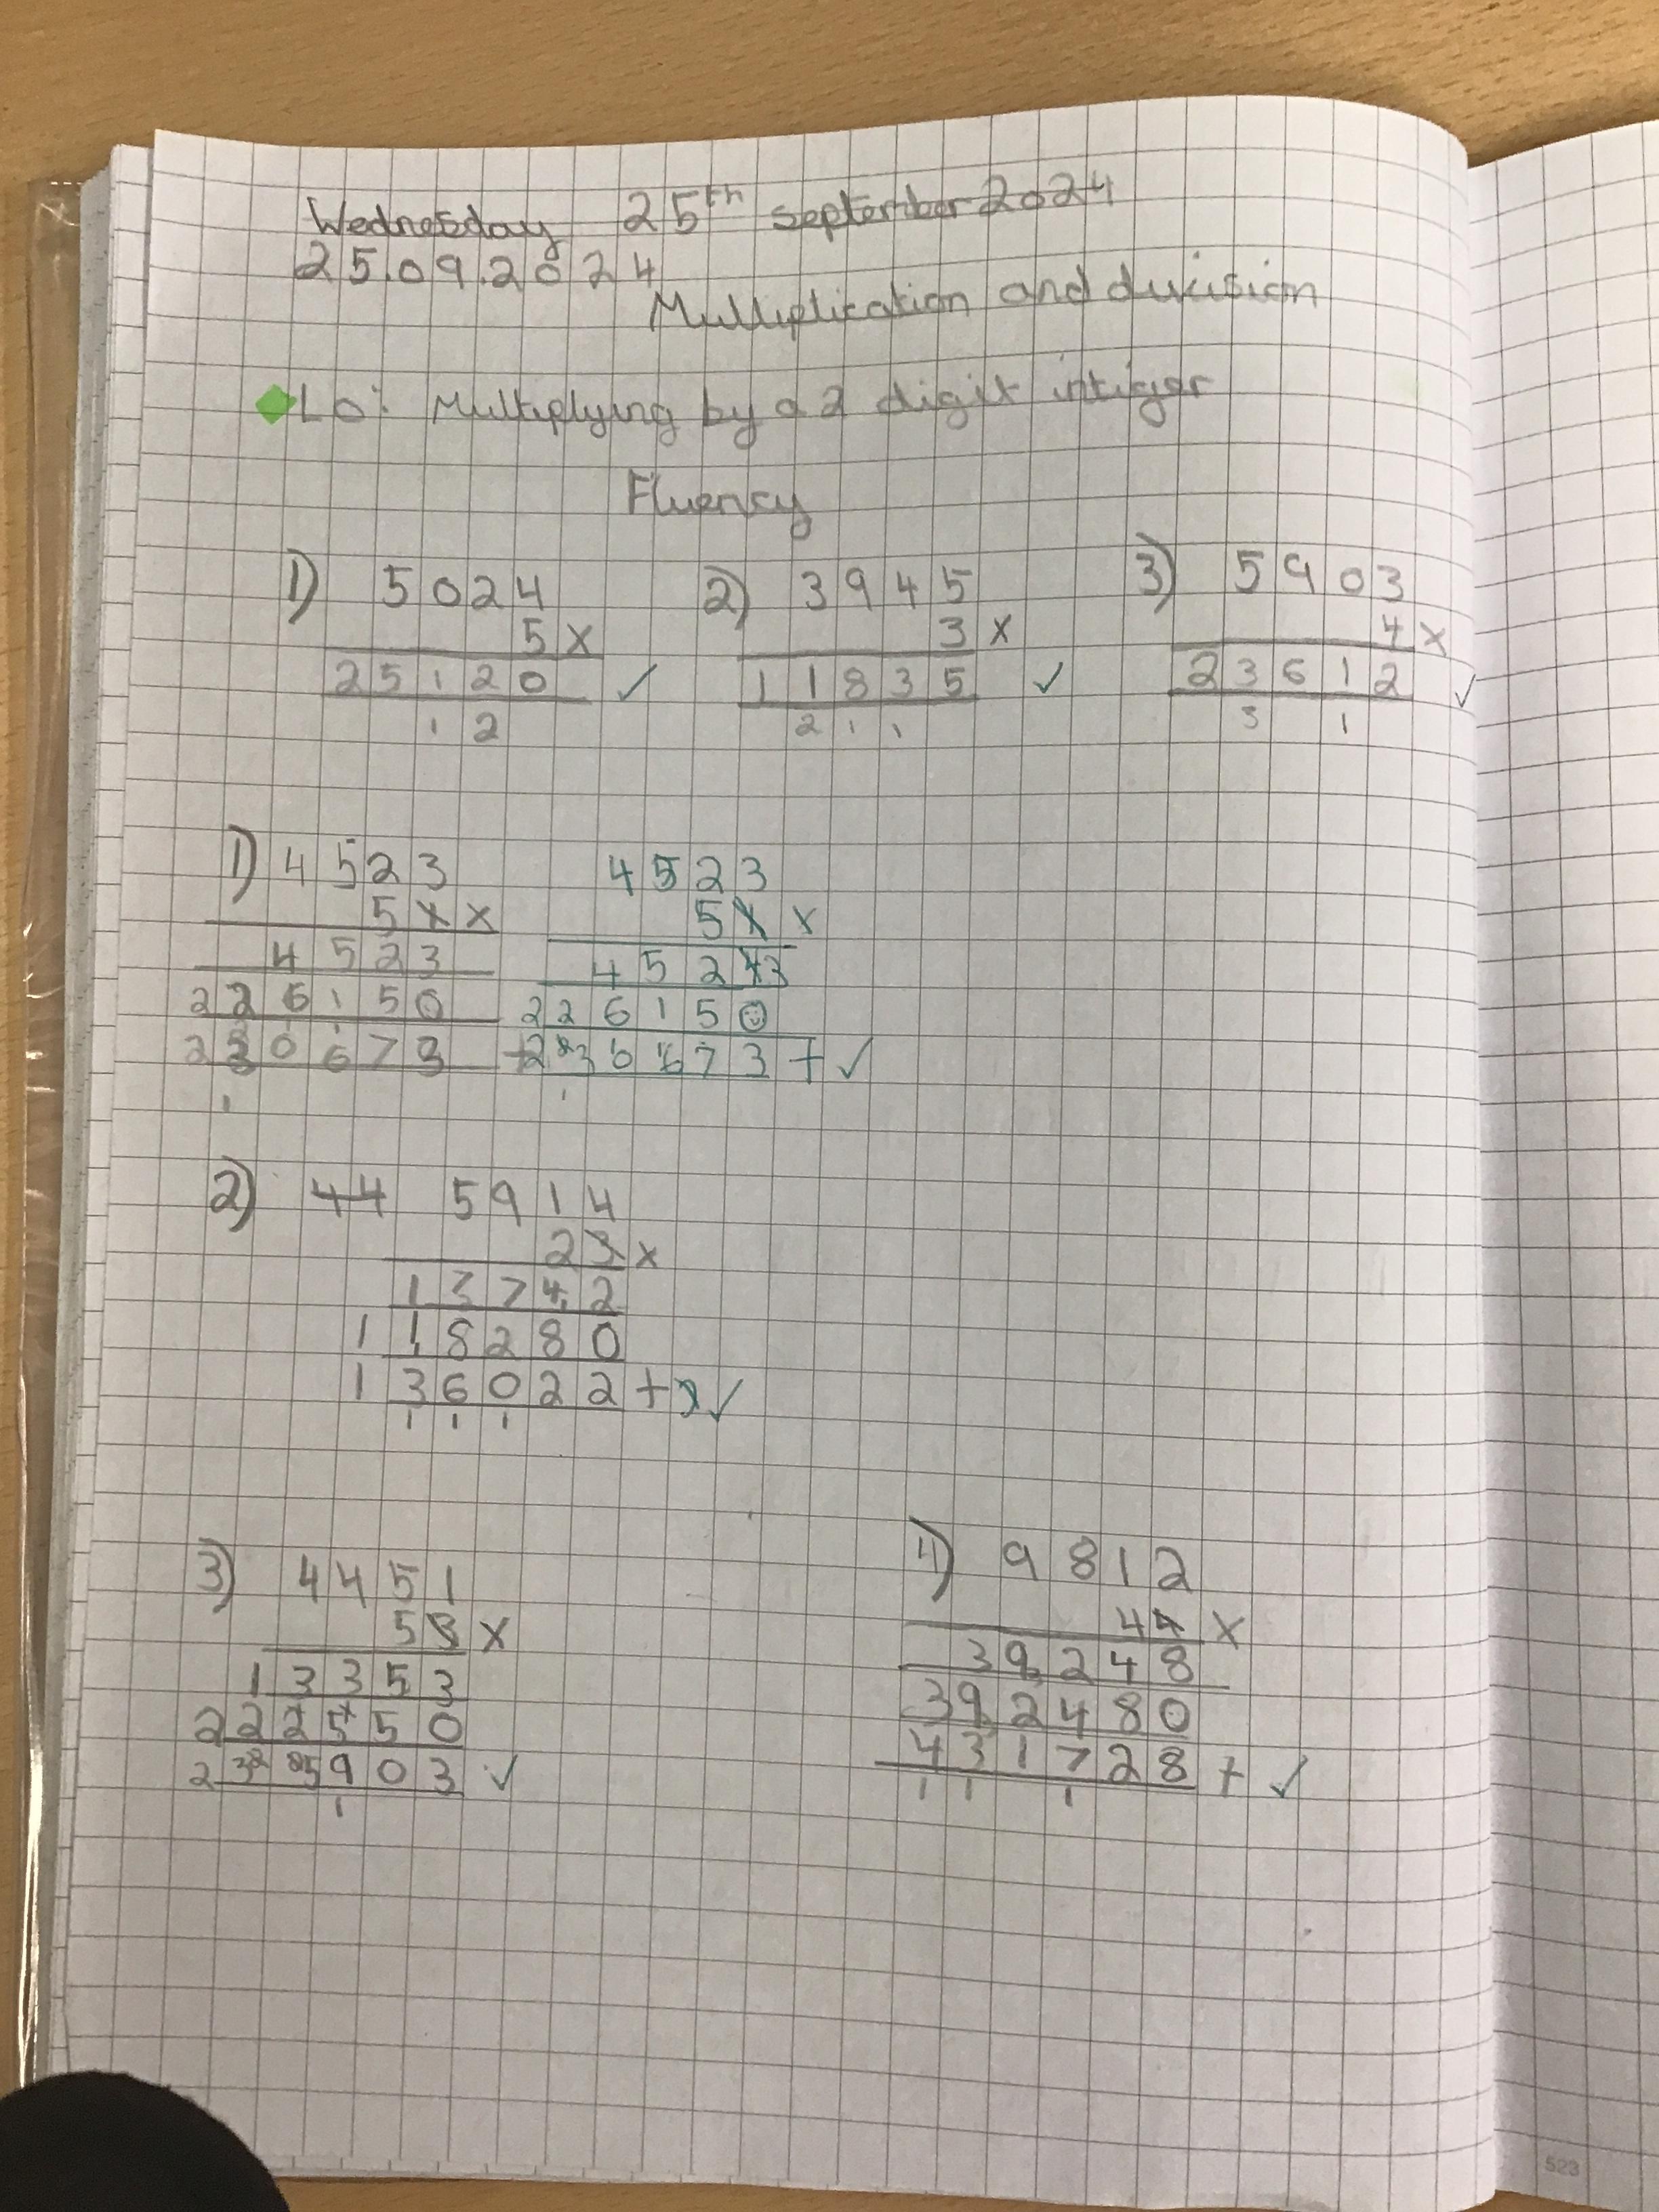 Wednesday 25th september 2024
25.09.2024
Multiplication and division
LO: Multiplying by a 2 digit intiger
Fluency
1) 5024 2) 3945 3) 5903
5 x 3 x 4 x
25120 ✓ 11835 ✓ 23612 ✓
1 2 2 1 1 3 1
1) 4523 4523
51 x 51 x
4523 4523
226150 226150
220673 + 230673 + ✓
1 1
2) 44 5914
23 x
13742
118280
136022 + ✓
1 1 1
3) 4451 4) 9812
53 x 44 x
13353 39248
222550 392480
235903 ✓ 431728 + ✓
1 1 1 1
523